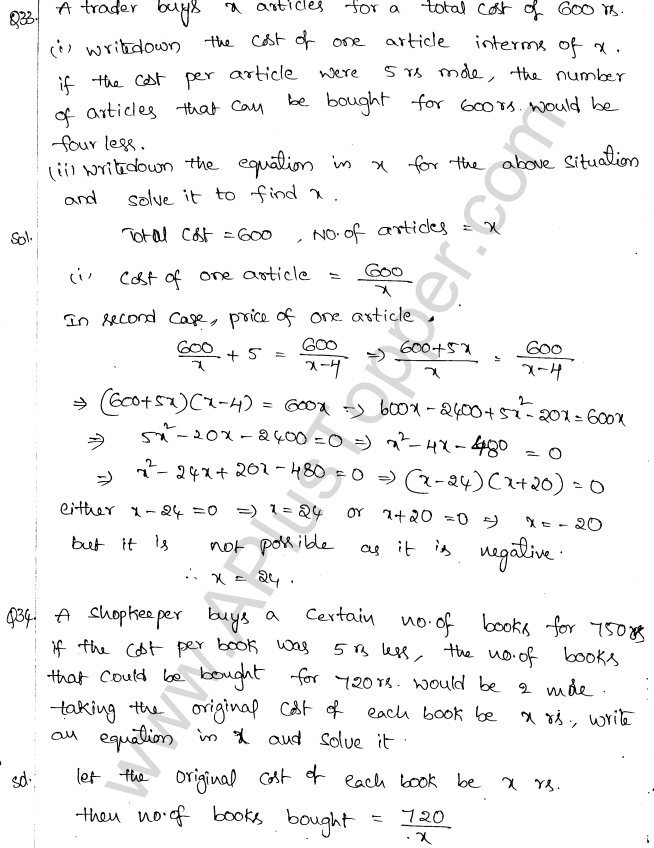 Q33. A trader buys x articles for a total cost of 600 rs.
(i) writedown the cost of one article interms of x.
if the cost per article were 5 rs more, the number
of articles that can be bought for 600 rs. would be
four less.
(ii) writedown the equation in x for the above situation
and solve it to find x.
Sol. Total cost = 600, No. of articles = x
(i) cost of one article = 600/x
In second case, price of one article.
600/x + 5 = 600/(x-4) ⇒ (600+5x)/x = 600/(x-4)
⇒ (600+5x)(x-4) = 600x ⇒ 600x - 2400 + 5x² - 20x = 600x
⇒ 5x² - 20x - 2400 = 0 ⇒ x² - 4x - 480 = 0
⇒ x² - 24x + 20x - 480 = 0 ⇒ (x-24)(x+20) = 0
either x - 24 = 0 ⇒ x = 24 or x + 20 = 0 ⇒ x = -20
but it is not possible as it is negative.
∴ x = 24.
Q34. A shopkeeper buys a certain no. of books for 750 rs
if the cost per book was 5 rs less, the no. of books
that could be bought for 720 rs. would be 2 more.
taking the original cost of each book be x rs., write
an equation in x and solve it.
Sol. let the original cost of each book be x rs.
then no. of books bought = 720/x
www.APlusTopper.com